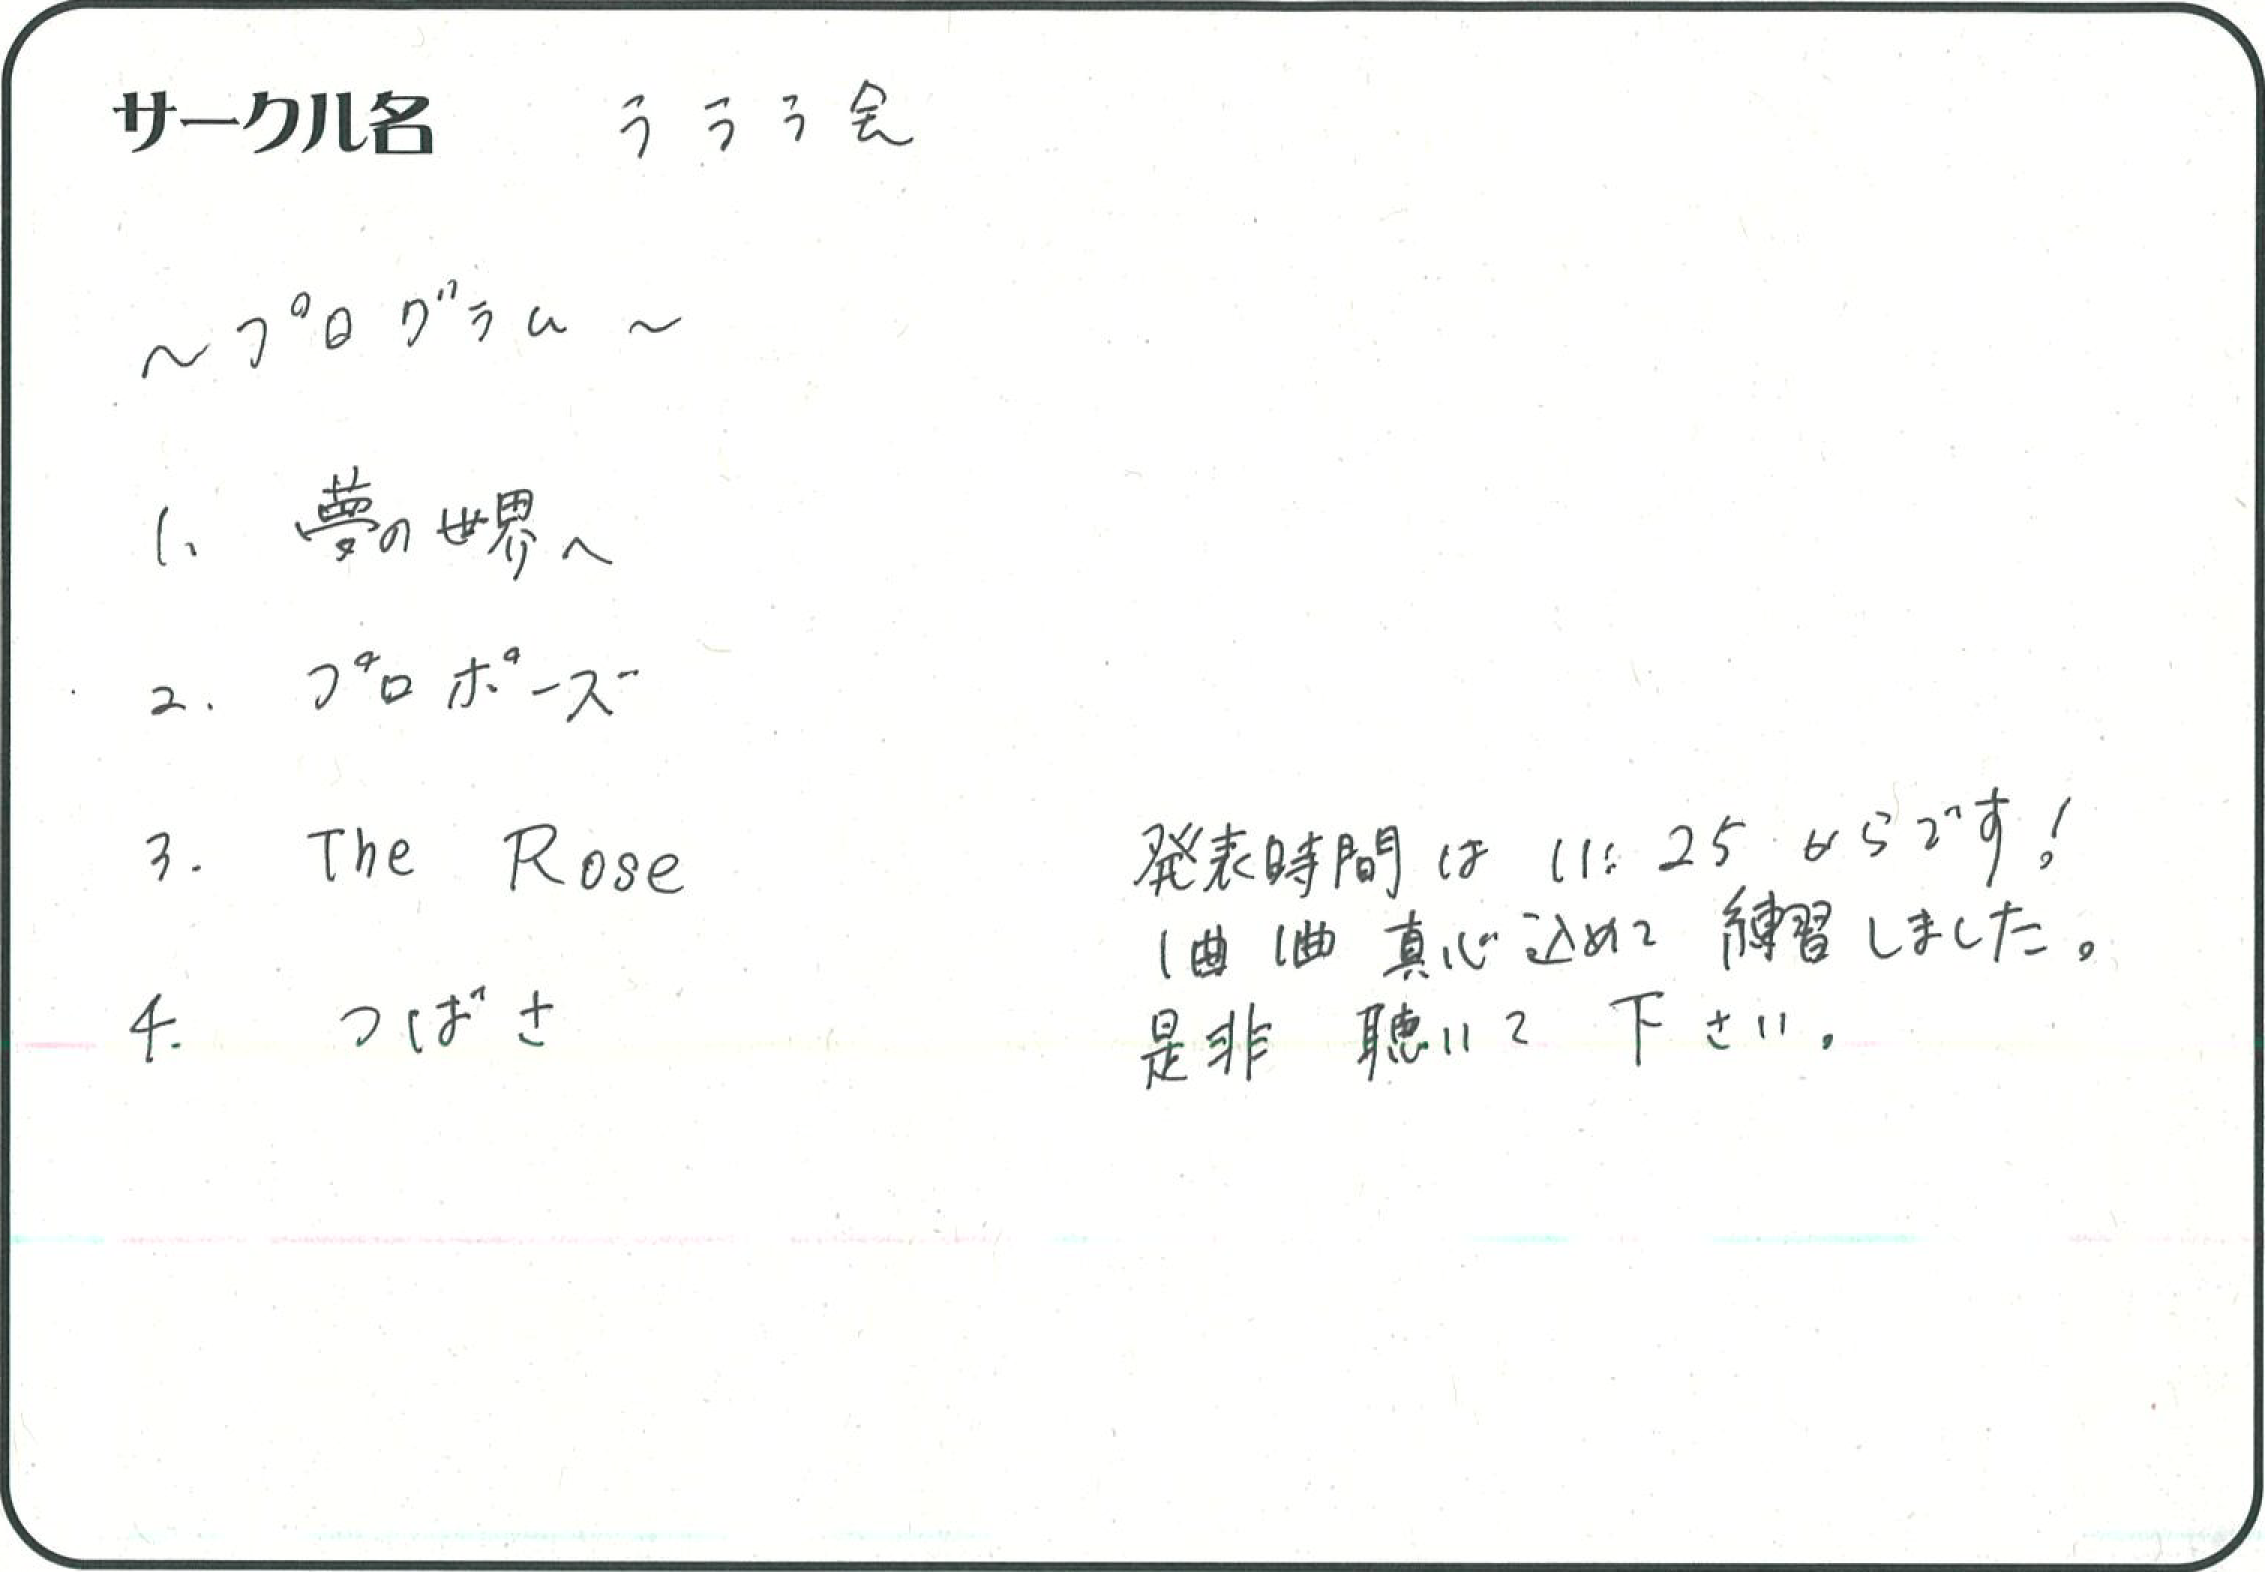 サークル名 ラララ会
～プログラム～
1. 夢の世界へ
2. プロポーズ
3. The Rose
4. つばさ
発表時間は 11:25からです!
1曲1曲 真心込めて 練習しました。
是非 聴いて 下さい。